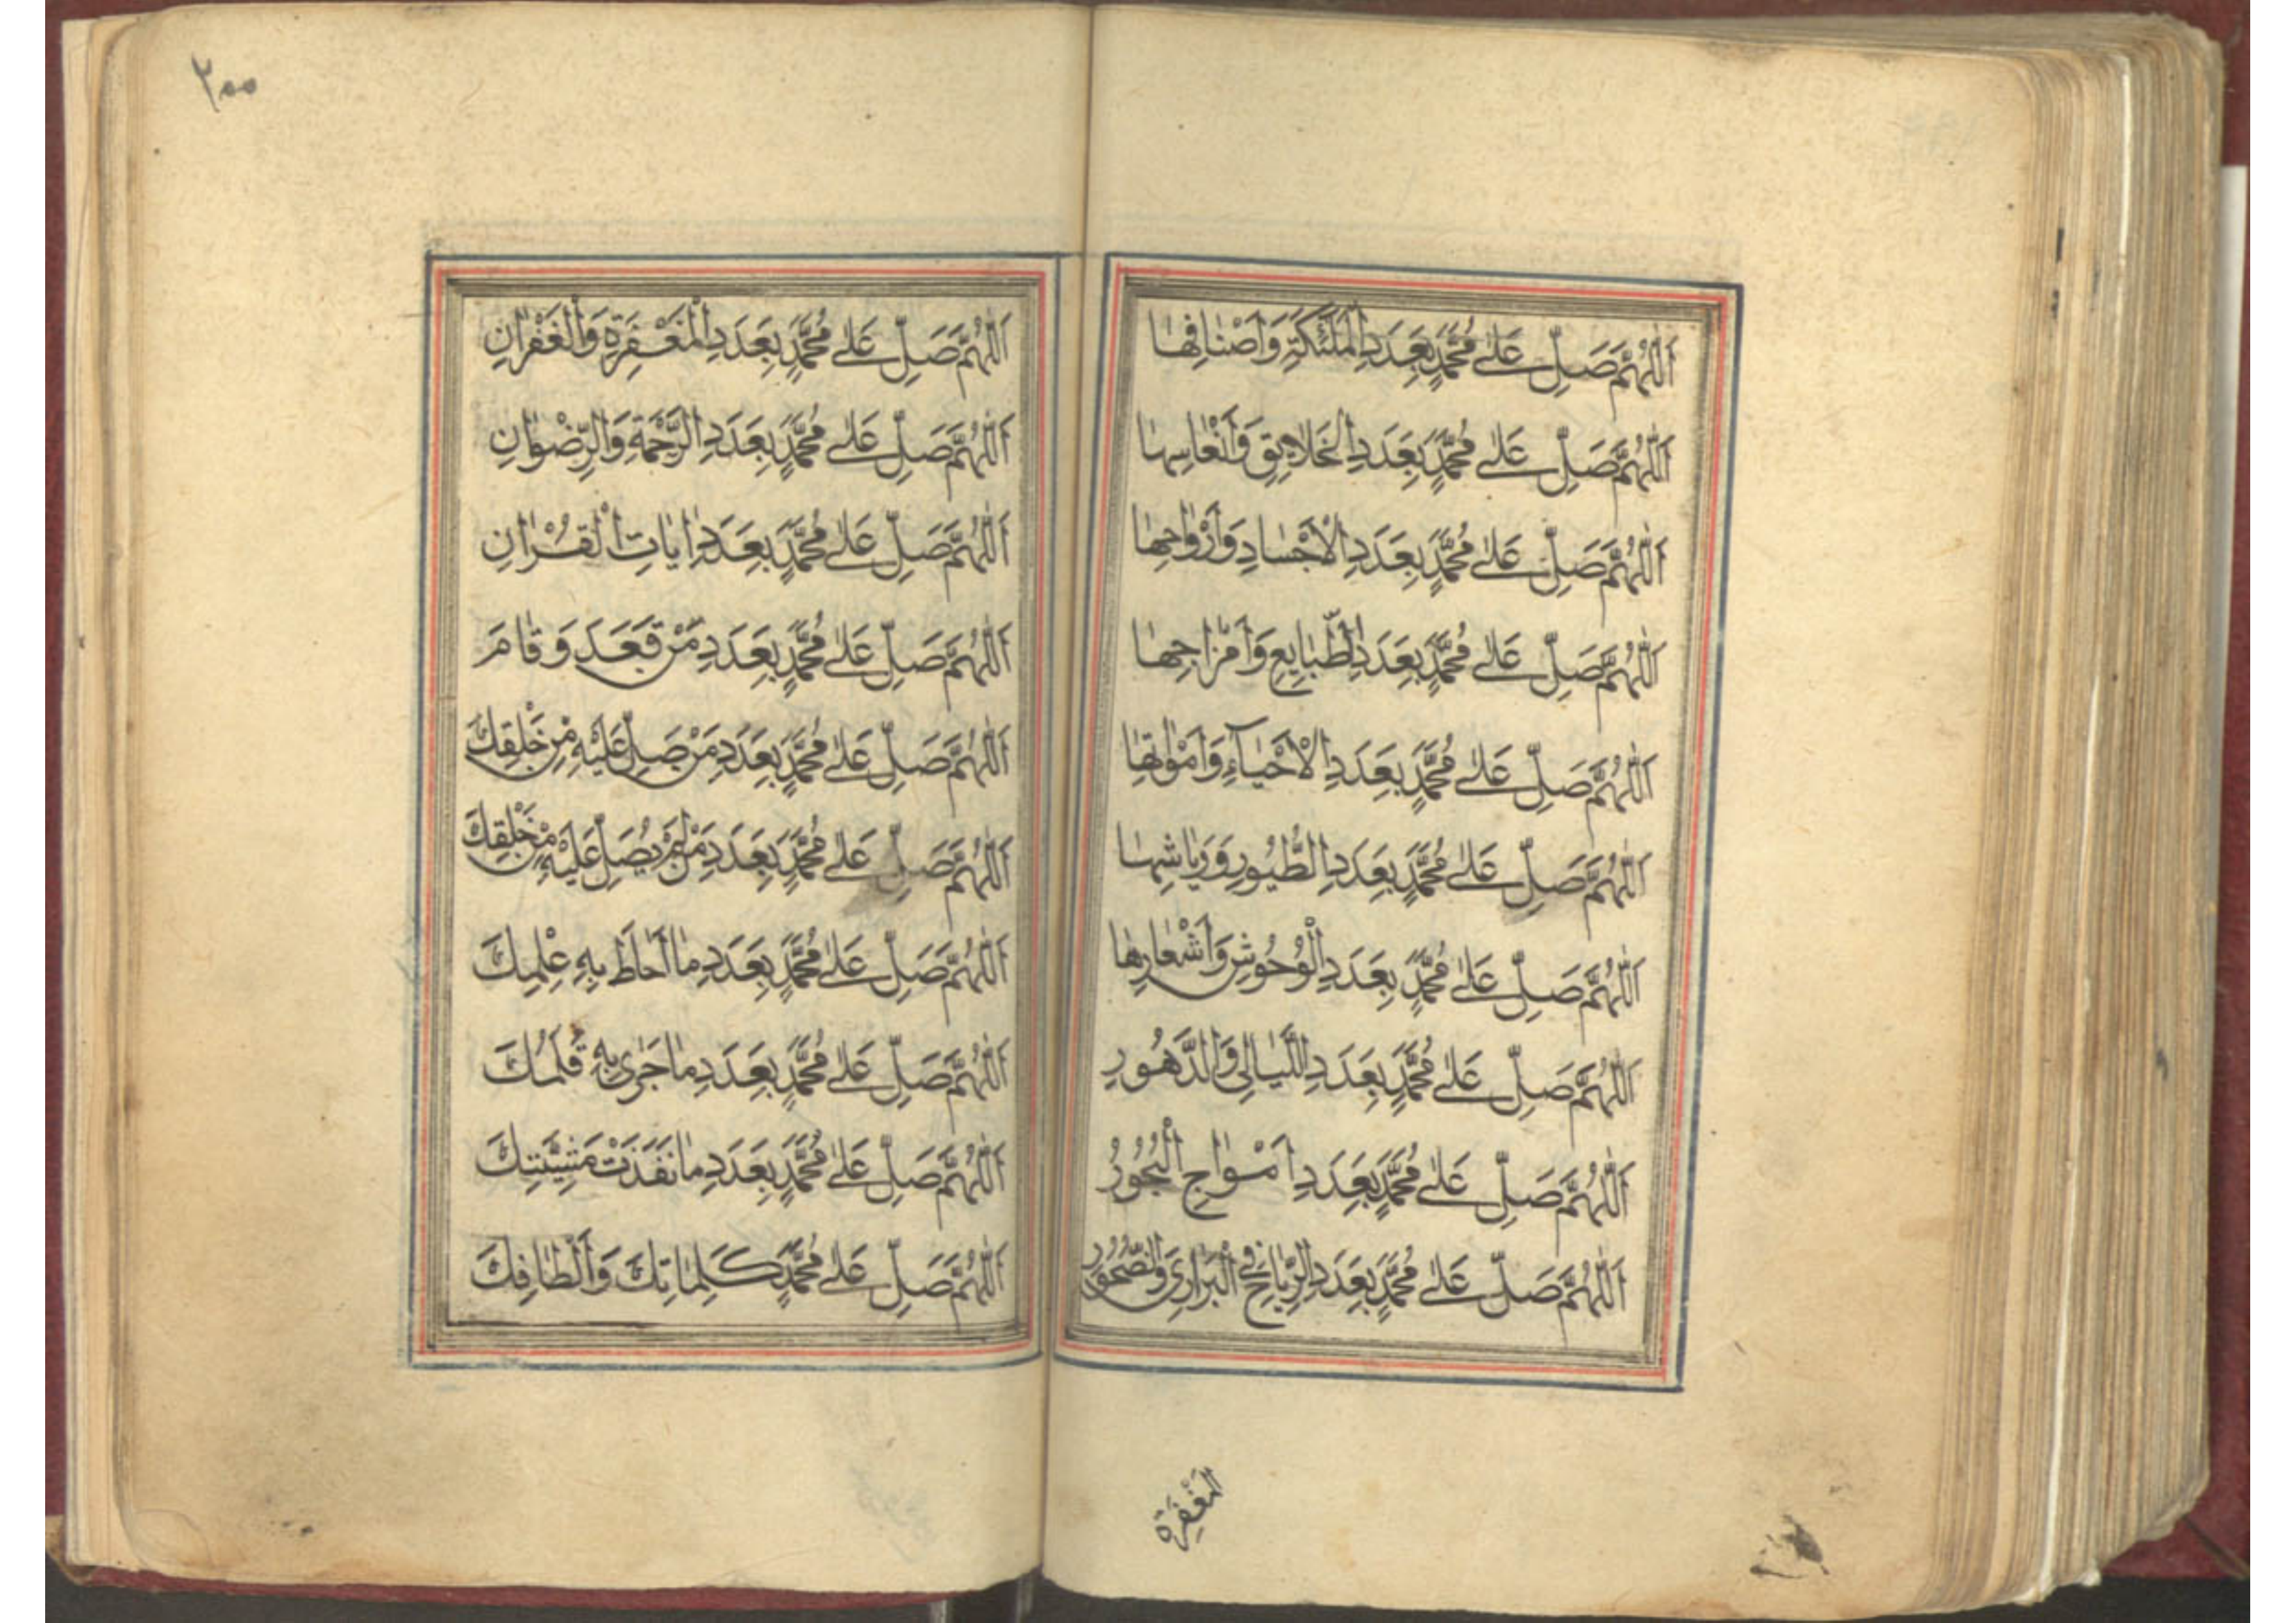 اَللّٰهُمَّ صَلِّ عَلٰى مُحَمَّدٍ بِعَدَدِ الْمَلٰئِكَةِ وَاَصْنَافِهَا
اَللّٰهُمَّ صَلِّ عَلٰى مُحَمَّدٍ بِعَدَدِ الْخَلَايِقِ وَاَنْفَاسِهَا
اَللّٰهُمَّ صَلِّ عَلٰى مُحَمَّدٍ بِعَدَدِ الْاَجْسَادِ وَاَرْوَاحِهَا
اَللّٰهُمَّ صَلِّ عَلٰى مُحَمَّدٍ بِعَدَدِ الطَّبَايِعِ وَاَمْزَاجِهَا
اَللّٰهُمَّ صَلِّ عَلٰى مُحَمَّدٍ بِعَدَدِ الْاَحْيَآءِ وَاَمْوَاتِهَا
اَللّٰهُمَّ صَلِّ عَلٰى مُحَمَّدٍ بِعَدَدِ الطُّيُورِ وَرِيَاشِهَا
اَللّٰهُمَّ صَلِّ عَلٰى مُحَمَّدٍ بِعَدَدِ الْوُحُوشِ وَاَشْعَارِهَا
اَللّٰهُمَّ صَلِّ عَلٰى مُحَمَّدٍ بِعَدَدِ اللَّيَالِى وَالدَّهُورِ
اَللّٰهُمَّ صَلِّ عَلٰى مُحَمَّدٍ بِعَدَدِ اَمْوَاجِ الْبُحُورُ
اَللّٰهُمَّ صَلِّ عَلٰى مُحَمَّدٍ بِعَدَدِ الرِّيَاحِ فِى الْبَرَارِى
المَغْفِرَةِ
٢٠٠
اَللّٰهُمَّ صَلِّ عَلٰى مُحَمَّدٍ بِعَدَدِ الْمَغْفِرَةِ وَالْغُفْرَانِ
اَللّٰهُمَّ صَلِّ عَلٰى مُحَمَّدٍ بِعَدَدِ الرَّحْمَةِ وَالرِّضْوَانِ
اَللّٰهُمَّ صَلِّ عَلٰى مُحَمَّدٍ بِعَدَدِ اٰيَاتِ الْقُرْاٰنِ
اَللّٰهُمَّ صَلِّ عَلٰى مُحَمَّدٍ بِعَدَدِ مَنْ قَعَدَ وَقَامَ
اَللّٰهُمَّ صَلِّ عَلٰى مُحَمَّدٍ بِعَدَدِ مَنْ صَلِّ عَلَيْهِ مِنْ خَلْقِكَ
اَللّٰهُمَّ صَلِّ عَلٰى مُحَمَّدٍ بِعَدَدِ مَنْ لَمْ يُصَلِّ عَلَيْهِ مِنْ خَلْقِكَ
اَللّٰهُمَّ صَلِّ عَلٰى مُحَمَّدٍ بِعَدَدِ مَا اَحَاطَ بِهِ عِلْمِكَ
اَللّٰهُمَّ صَلِّ عَلٰى مُحَمَّدٍ بِعَدَدِ مَا جَرٰى بِهِ قَلَمُكَ
اَللّٰهُمَّ صَلِّ عَلٰى مُحَمَّدٍ بِعَدَدِ مَا نَفَذَتْ مَشِيَّتِكَ
اَللّٰهُمَّ صَلِّ عَلٰى مُحَمَّدٍ كَلِمَاتِكَ وَاَلْطَافِكَ